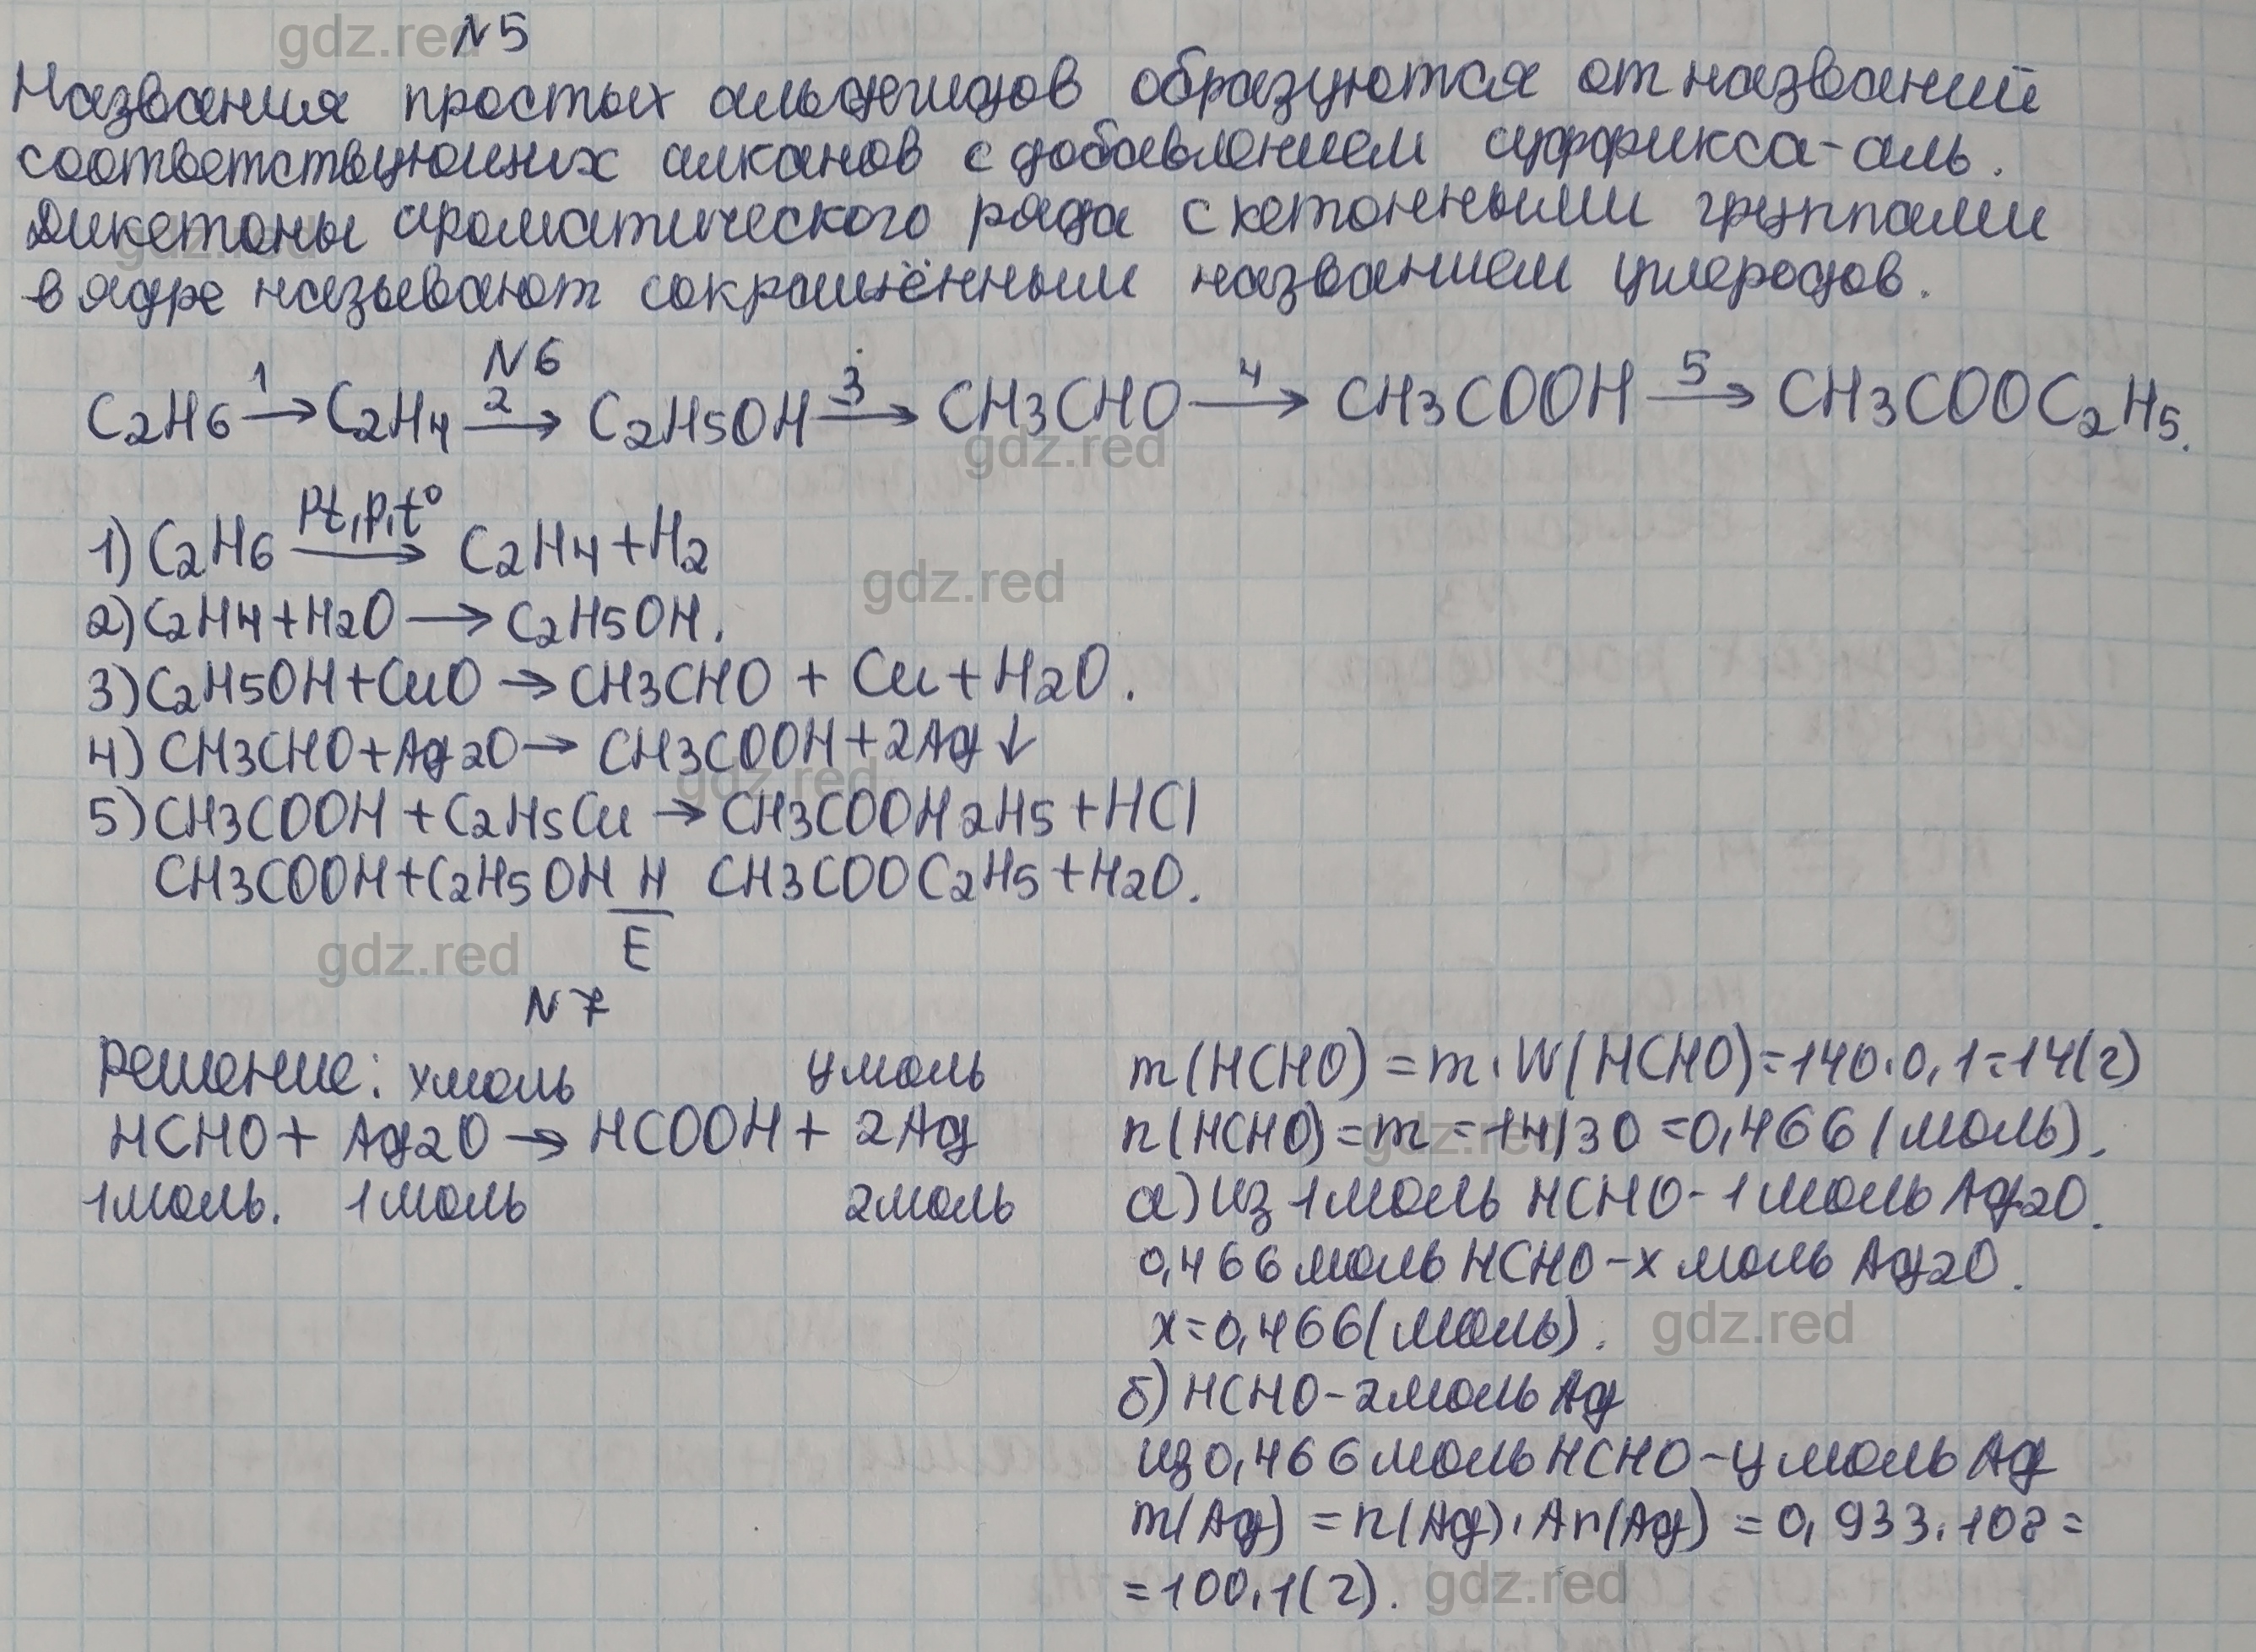 N5
Названия простых альдегидов образуются от названий
соответствующих алканов с добавлением суффикса-аль.
Дикетоны ароматического ряда с кетонными группами
в ядре называют сокращённым названием углеродов.
N6
C2H6 1→ C2H4 2→ C2H5OH 3→ CH3CHO 4→ CH3COOH 5→ CH3COOC2H5.
1) C2H6 Pt,p,t°→ C2H4+H2
2) C2H4+H2O → C2H5OH.
3) C2H5OH+CuO → CH3CHO + Cu + H2O.
4) CH3CHO+Ag2O → CH3COOH+2Ag↓
5) CH3COOH+C2H5Cu → CH3COOH2H5+HCl
CH3COOH+C2H5OH H CH3COOC2H5+H2O.
E
N7
Решение: x моль y моль
HCHO + Ag2O → HCOOH + 2Ag
1 моль. 1 моль 2 моль
m(HCHO) = m·W(HCHO)=140·0,1=14(г)
n(HCHO)=m=14/30=0,466(моль).
а) Из 1 моль HCHO-1 моль Ag2O.
0,466 моль HCHO-x моль Ag2O.
x=0,466(моль).
б) HCHO-2 моль Ag
из 0,466 моль HCHO-y моль Ag
m(Ag) = n(Ag)·An(Ag) = 0,933·108=
=100,1(г).
gdz.red
gdz.red
gdz.red
gdz.red
gdz.red
gdz.red
gdz.red
gdz.red
gdz.red